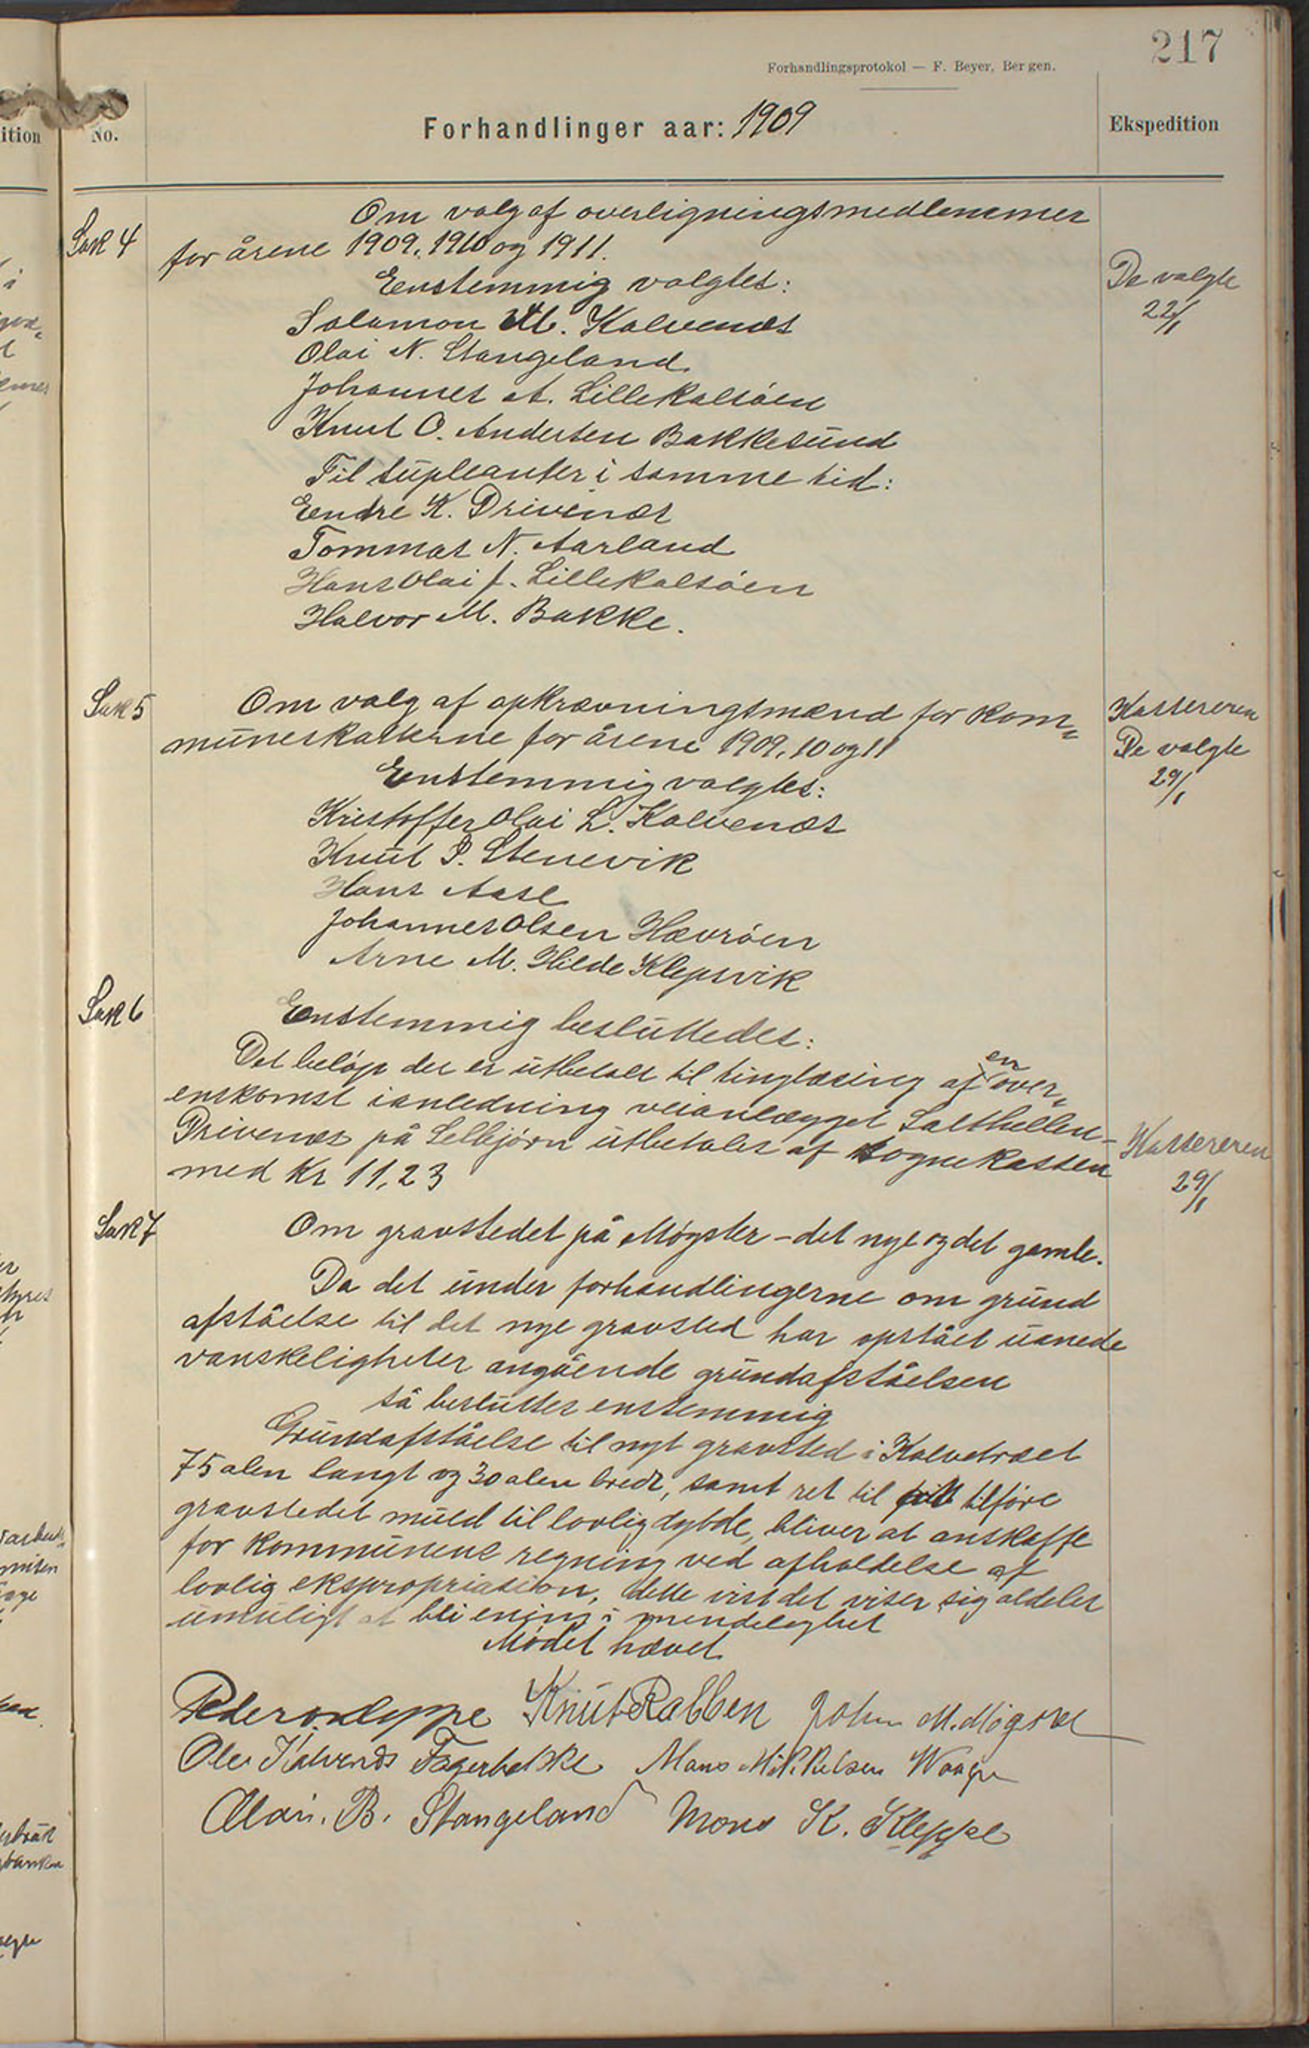 217
Forhandlingsprotokol — F. Beyer, Bergen.
ition
No.
Forhandlinger aar: 1909
Ekspedition
Sak 4
Om valg af overligningsmedlemmer
for årene 1909, 1910 og 1911.
Enstemmig valgtes:
De valgte
22/1
Salamon M. Kalvenæs
Olai N. Stangeland
Johannes A. Lillekalsöen
Knut O. Andersen Bakkesund
Til supleanter i samme tid:
Endre K. Drivenæs
Tommas N. Aarland
Hans Olai J. Lillekalsöen
Halvor M. Bakke.
Sak 5
Om valg af opkrævningsmænd for kom-
muneskatterne for årene 1909, 10 og 11
Kassereren
De valgte
29/1
Enstemmig valgtes:
Kristoffer Olai L. Kalvenæs
Knut P. Stenevik
Hans Aase
Johannes Olsen Hævröen
Arne M. Hilde Klepsvik
Sak 6
Enstemmig besluttedes:
Det beløp der er utbetalt til tinglæsing af en over-
enskomst i anledning veianlægget Salthellen-
Drivenes på Selbjörn utbetales af sognekassen
med Kr 11,23
Kassereren
29/1
Sak 7
Om gravstedet på Møgster - det nye og det gamle.
Da det under forhandlingerne om grund
afståelse til det nye gravsted har opstået uanede
vanskeligheter angående grundafståelsen
så beslutter enstemmig
Grundafståelse til nyt gravsted i Kalvetræet
75 alen langt og 30 alen bredt, samt ret til tilföre
gravstedet muld til lovlig dybde, bliver at anskaffe
for kommunens regning ved afholdelse af
lovlig ekspropriation, dette vist det viser sig aldeles
umuligt at bli enig i mindelighet
Mödet hævet
Knut Rabben John M. Mögster
Ole Kalvenes Fagerbakke Mons Mikkelsen Waage
Olai. B. Stangeland Mons K. Kleppe